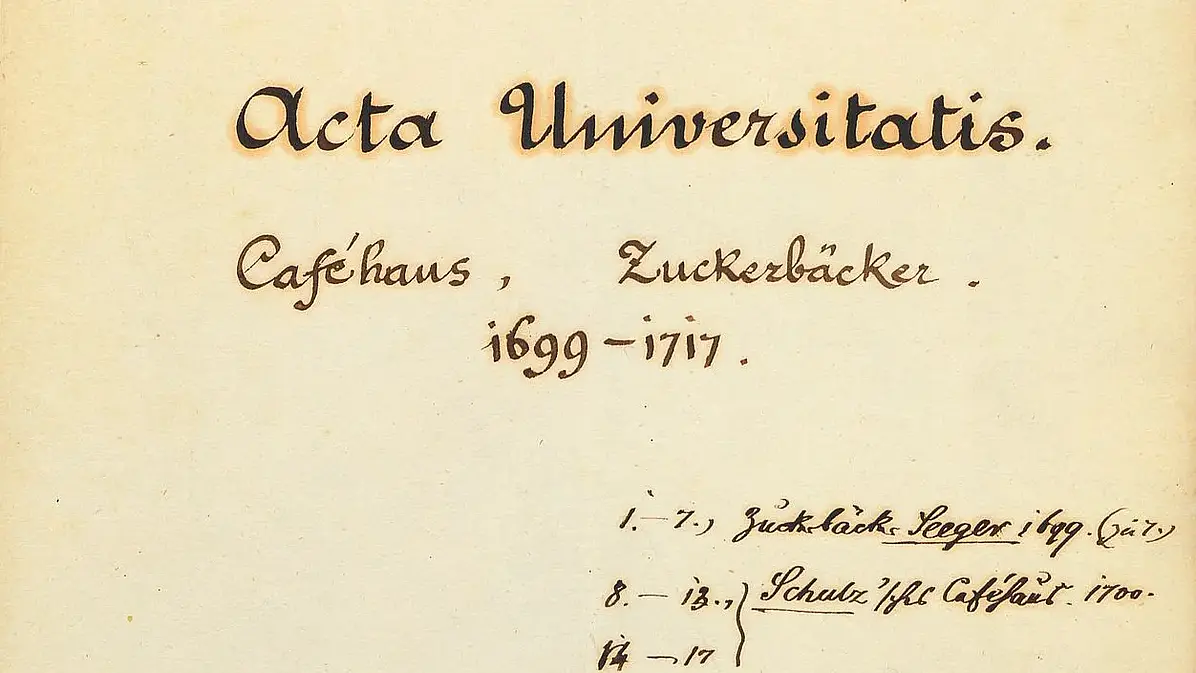 Acta Universitatis.
Caféhaus, Zuckerbäcker.
1699 – 1717.
1. – 7., Zuckbäck. Seeger 1699.
8. – 13., Schulz'sches Caféhaus. 1700.
14 – 17